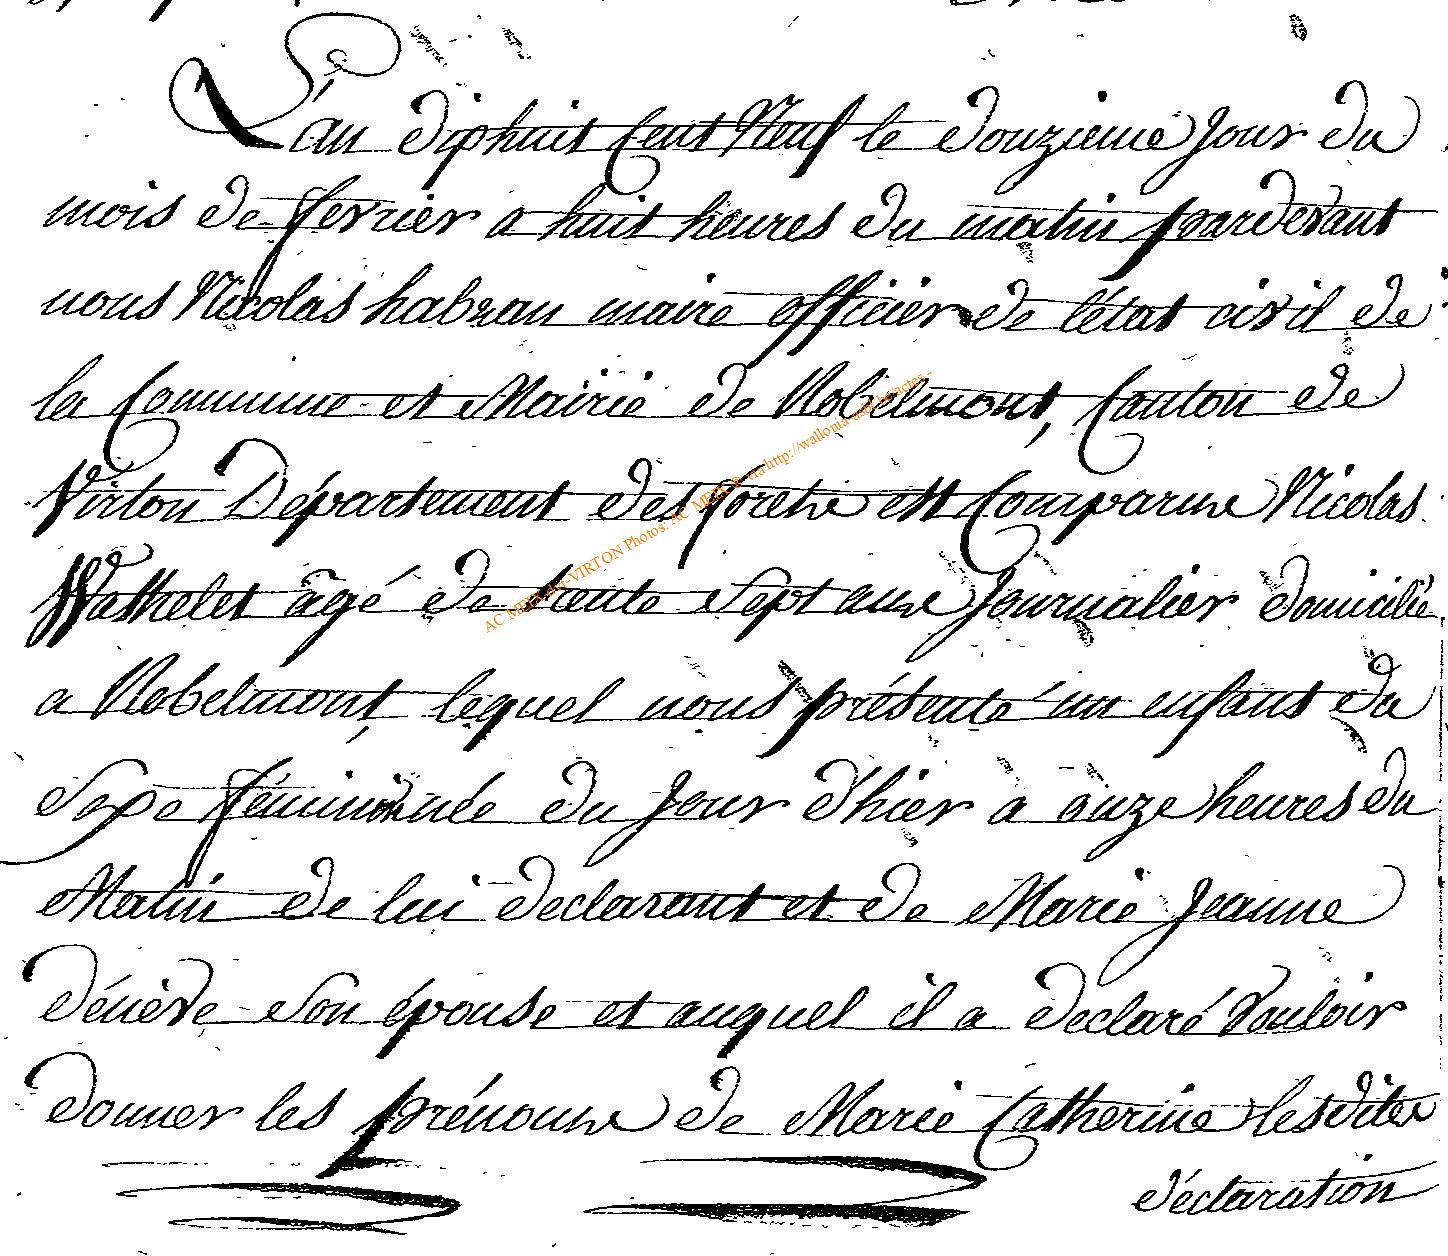 L'an dixhuit Cent Neuf le douzieme Jour du
mois de fevrier a huit heures du matin pardevant
nous Nicolas habran maire officier de l'état civil de
la Commune et Mairie de Robelmont, Canton de
Virton Département des forets est Comparu Nicolas
Wathelet âgé de trente Sept ans Journalier domicilié
a Robelmont, lequel nous présente un enfant du
Sexe féminin née du Jour d'hier a onze heures du
Matin de lui declarant et de Marie Jeanne
dénève Son épouse et auquel il a declaré Vouloir
donner les prénoms de Marie Catherine lesdites
déclaration